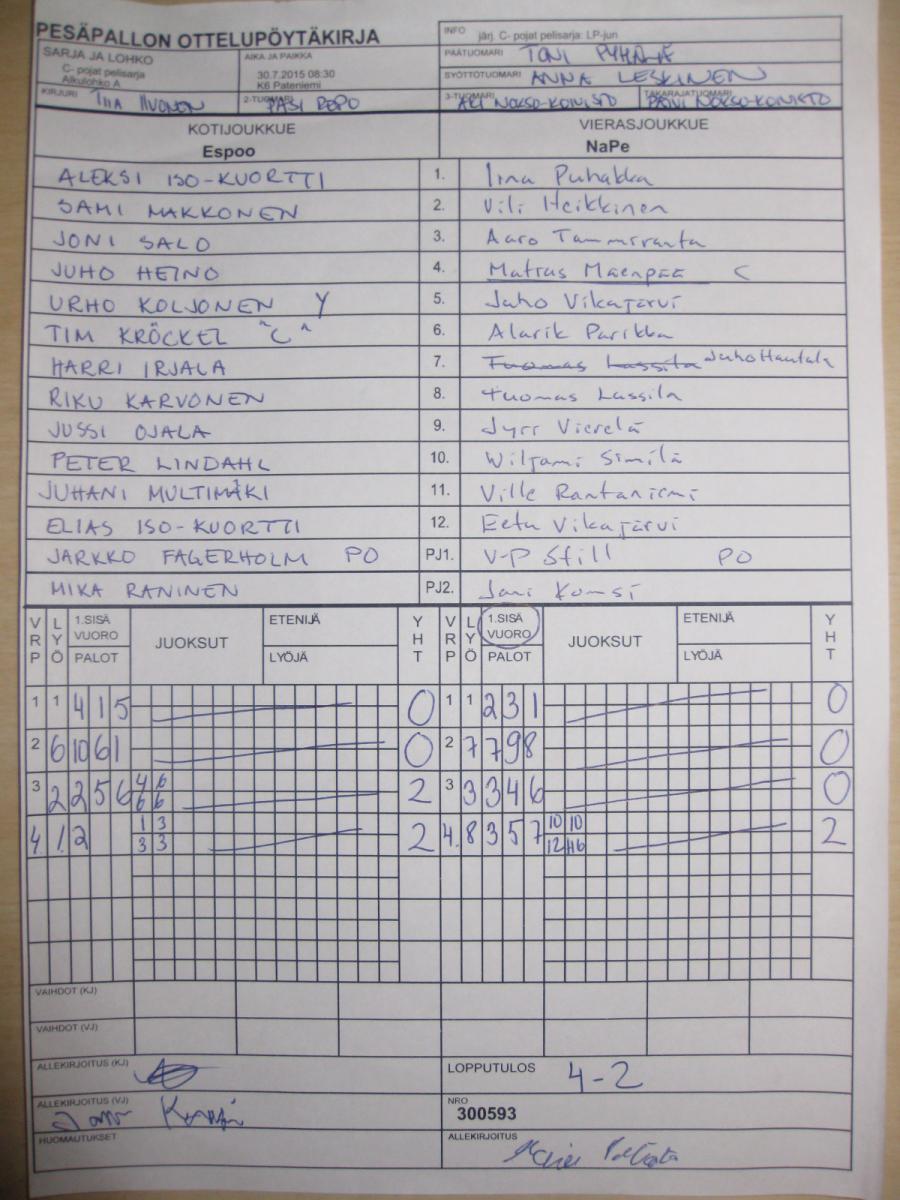 PESÄPALLON OTTELUPÖYTÄKIRJA
INFO järj. C- pojat pelisarja: LP-jun
SARJA JA LOHKO
C- pojat pelisarja
Alkulohko A
AIKA JA PAIKKA
30.7.2015 08:30
K6 Pateniemi
PÄÄTUOMARI TONI
SYÖTTÖTUOMARI ANNA LESKINEN
KIRJURI TIIA IIVONEN
2-TUOMARI PASI REPO
3-TUOMARI ARI NOKSO-KOIVISTO
TAKARAJATUOMARI PÄIVI NOKSO-KOIVISTO
KOTIJOUKKUE VIERASJOUKKUE
Espoo NaPe
ALEKSI ISO-KUORTTI 1. Iina Puhakka
SAMI MAKKONEN 2. Vili Heikkinen
JONI SALO 3. Aaro Tammiranta
JUHO HEINO 4. Matias Mäenpää C
URHO KOLJONEN Y 5. Juho Vikajärvi
TIM KRÖCKEL "C" 6. Alarik Parikka
HARRI IRJALA 7. Tuomas Lassila Juho Hautala
RIKU KARVONEN 8. Tuomas Lassila
JUSSI OJALA 9. Jyri Vierelä
PETER LINDAHL 10. Wiljami Similä
JUHANI MULTIMÄKI 11. Ville Rantaniemi
ELIAS ISO-KUORTTI 12. Eetu Vikajärvi
JARKKO FAGERHOLM PO PJ1. V-P Still PO
MIKA RANINEN PJ2. Jani Komsi
VRP LYÖ 1.SISÄ VUORO PALOT JUOKSUT ETENIJÄ LYÖJÄ YHT VRP LYÖ 1.SISÄ VUORO PALOT JUOKSUT ETENIJÄ LYÖJÄ YHT
1 1 4 1 5 0 1 1 2 3 1 0
2 6 10 6 1 0 2 7 7 9 8 0
3 2 2 5 6 4 6 2 3 3 3 4 6 0
6 6
4. 1. 2 1 3 2 4. 8 3 5 7 10 10 2
3 3 12
VAIHDOT (KJ)
VAIHDOT (VJ)
ALLEKIRJOITUS (KJ)
LOPPUTULOS 4-2
ALLEKIRJOITUS (VJ)
NRO
300593
HUOMAUTUKSET
ALLEKIRJOITUS